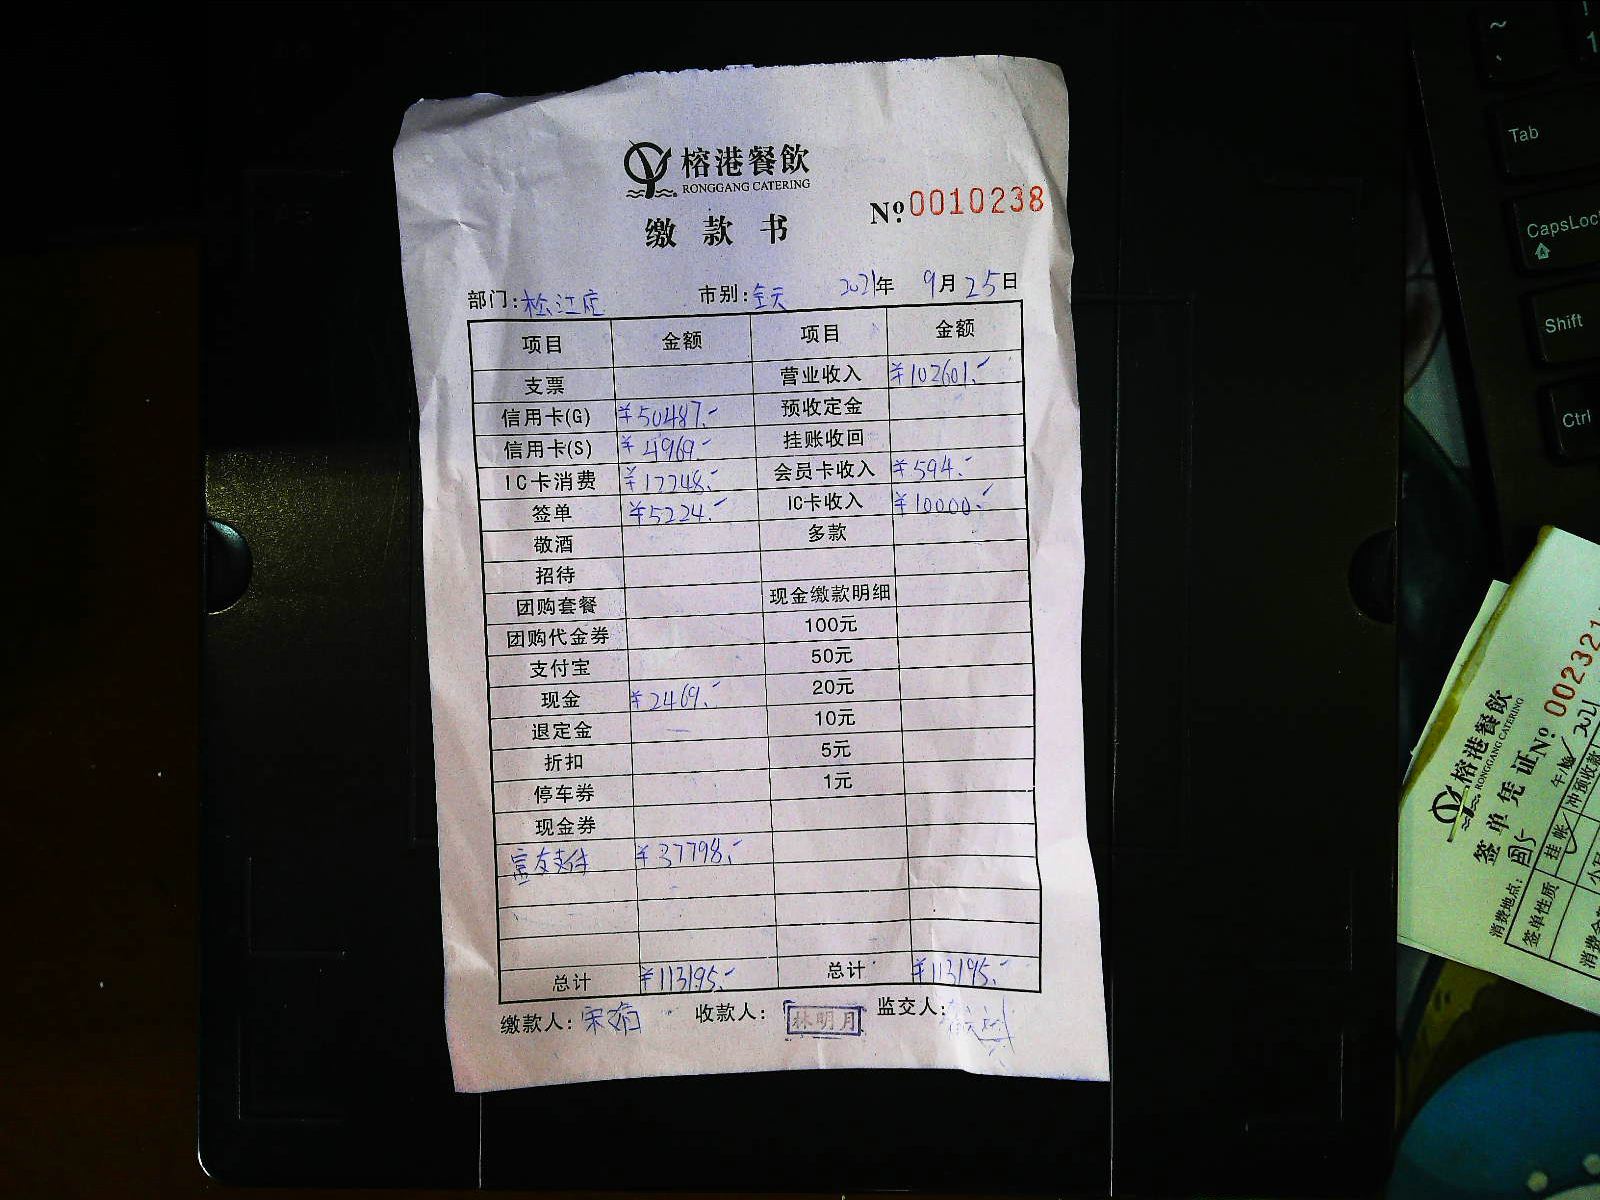 榕港餐飲
RONGGANG CATERING
缴款书
№ 0010238
部门: 松江店 市别: 全天 2021年 9月25日
项目 金额 项目 金额
支票 营业收入 ¥102601.-
信用卡(G) ¥50487.- 预收定金
信用卡(S) ¥4969- 挂账收回
IC卡消费 ¥12248.- 会员卡收入 ¥594.-
签单 ¥5224.- IC卡收入 ¥10000.-
敬酒 多款
招待
团购套餐 现金缴款明细
团购代金券 100元
支付宝 50元
现金 ¥2469.- 20元
退定金 10元
折扣 5元
停车券 1元
现金券
富友支付 ¥37798.-
总计 ¥113195.- 总计 ¥113195.-
缴款人: 收款人: 林明月 监交人:
榕港餐飲
RONGGANG CATERING
签单凭证
№ 002321
午/晚 2021
消费地点:
签单性质 挂帐 冲预收款
Tab
CapsLoc
Shift
Ctrl